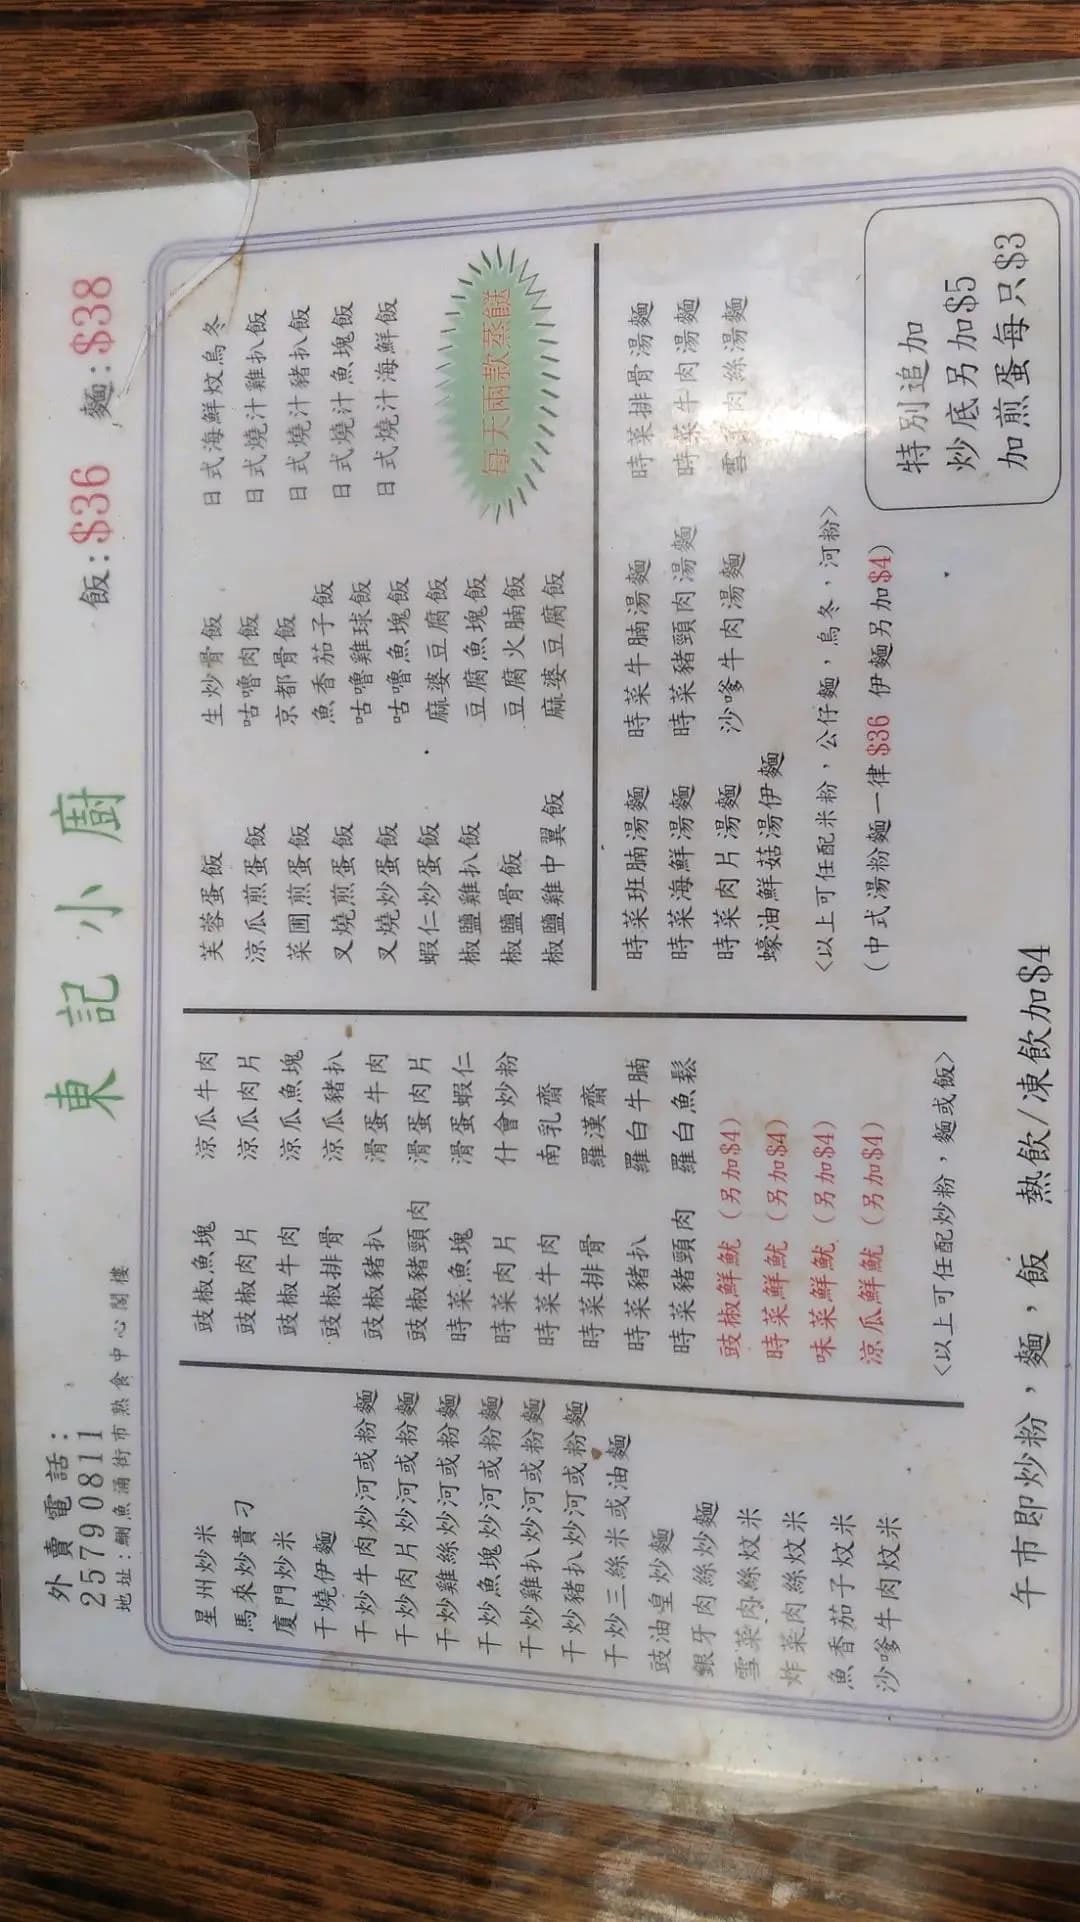 外賣電話:
25790811
地址:鰂魚涌街市熟食中心閣樓
東記小廚
飯:$36 麵:$38
星州炒米
馬來炒貴刁
廈門炒米
干燒伊麵
干炒牛肉炒河或粉麵
干炒肉片炒河或粉麵
干炒雞絲炒河或粉麵
干炒魚塊炒河或粉麵
干炒雞扒炒河或粉麵
干炒豬扒炒河或粉麵
干炒三絲米或油麵
豉油皇炒麵
銀牙肉絲炒麵
雪菜肉絲炆米
炸菜肉絲炆米
魚香茄子炆米
沙嗲牛肉炆米
豉椒魚塊 涼瓜牛肉
豉椒肉片 涼瓜肉片
豉椒牛肉 涼瓜魚塊
豉椒排骨 涼瓜豬扒
豉椒豬扒 滑蛋牛肉
豉椒豬頸肉 滑蛋肉片
時菜魚塊 滑蛋蝦仁
時菜肉片 什會炒粉
時菜牛肉 南乳齋
時菜排骨 羅漢齋
時菜豬扒 羅白牛腩
時菜豬頸肉 羅白魚鬆
豉椒鮮魷(另加$4)
時菜鮮魷(另加$4)
味菜鮮魷(另加$4)
涼瓜鮮魷(另加$4)
<以上可任配炒粉,麵或飯>
芙蓉蛋飯 生炒骨飯 日式海鮮炆烏冬
涼瓜煎蛋飯 咕嚕肉飯 日式燒汁雞扒飯
菜圃煎蛋飯 京都骨飯 日式燒汁豬扒飯
叉燒煎蛋飯 魚香茄子飯 日式燒汁魚塊飯
叉燒炒蛋飯 咕嚕雞球飯 日式燒汁海鮮飯
蝦仁炒蛋飯 咕嚕魚塊飯
椒鹽雞扒飯 麻婆豆腐飯
椒鹽骨飯 豆腐魚塊飯
椒鹽雞中翼飯 豆腐火腩飯
麻婆豆腐飯
每天兩款蒸餸
時菜班腩湯麵 時菜牛腩湯麵 時菜排骨湯麵
時菜海鮮湯麵 時菜豬頸肉湯麵 時菜牛肉湯麵
時菜肉片湯麵 沙嗲牛肉湯麵 雪菜肉絲湯麵
蠔油鮮菇湯伊麵
<以上可任配米粉,公仔麵,烏冬,河粉>
(中式湯粉麵一律$36 伊麵另加$4)
特別追加
炒底另加$5
加煎蛋每只$3
午市即炒粉,麵,飯 熱飲/凍飲加$4